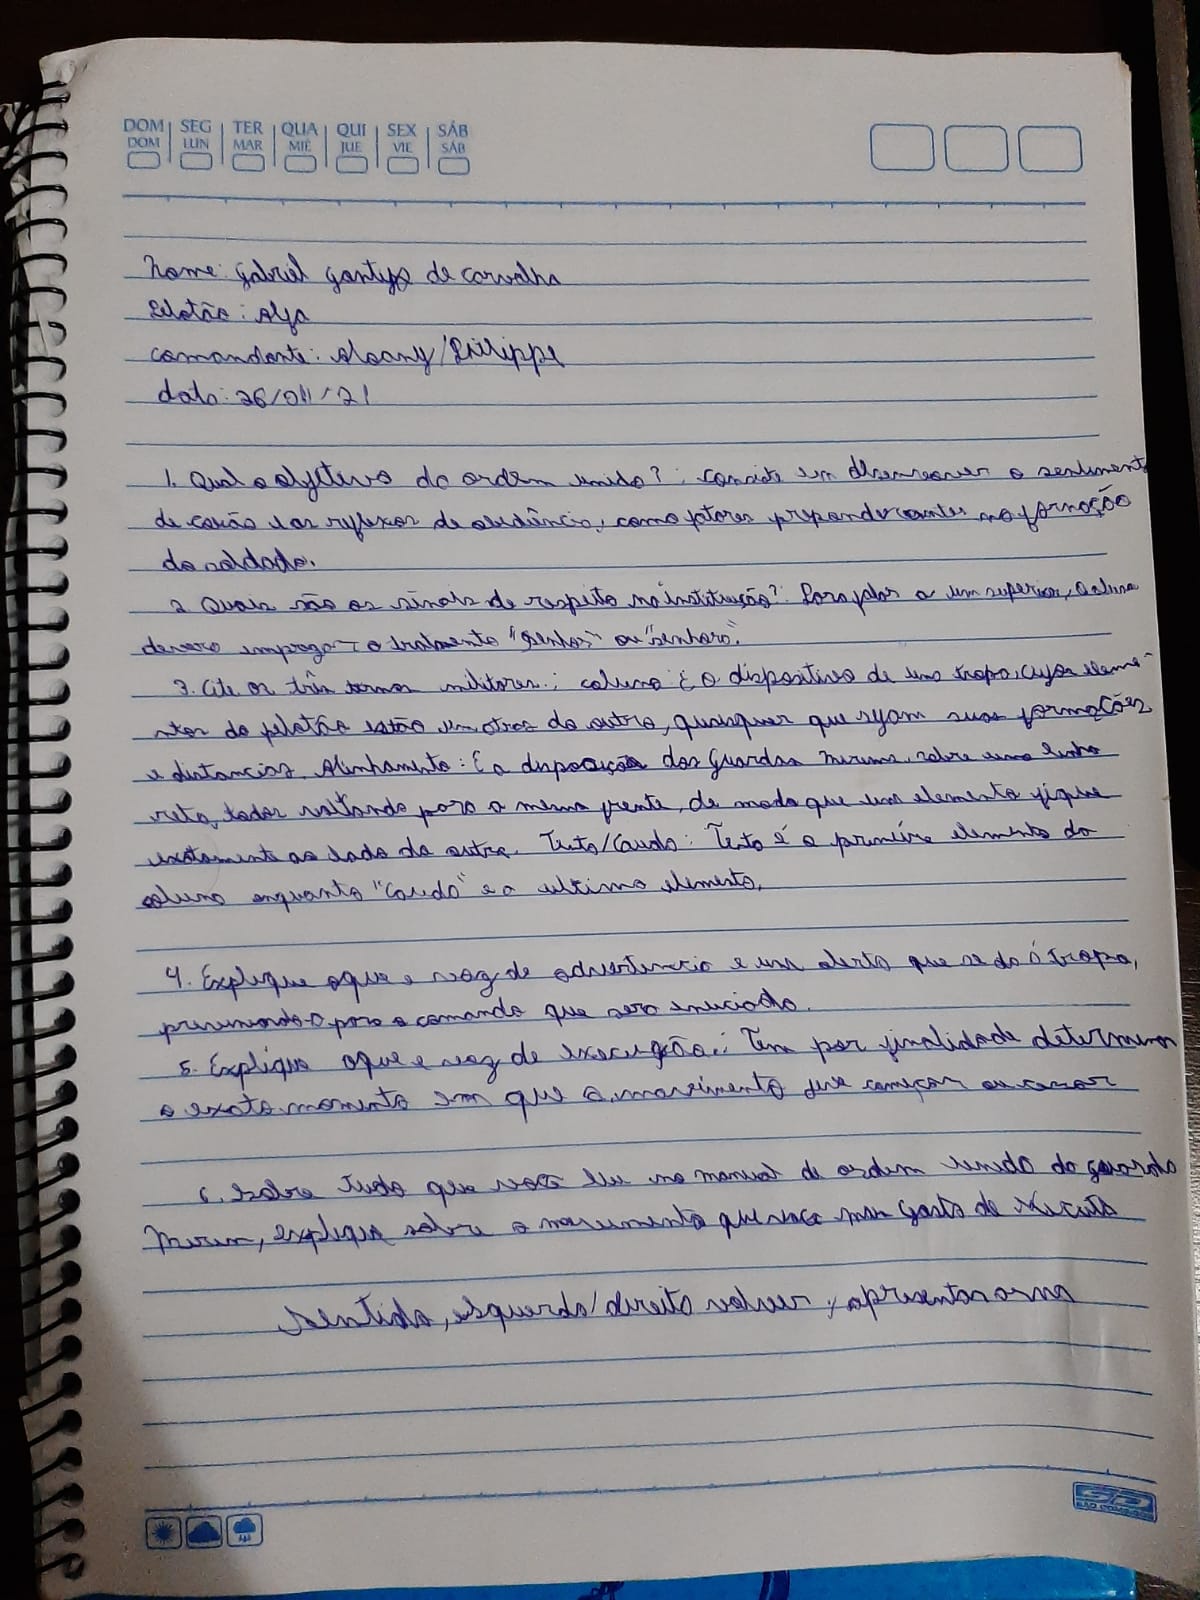 DOM SEG TER QUA QUI SEX SÁB
DOM LUN MAR MIÉ JUE VIE SÁB
Nome: Gabriel de Carvalho
Pelotão: Alfa
comandante: /Philippe
data: 26/01/21
1. Qual o objetivo da ordem unida?: Consiste em o sentimento
de coesão e os reflexos de obediência, como fatores preponderantes na formação
do soldado.
2. Quais são os sinais de respeito na instituição?: Para falar a um superior, o aluno
devera empregar o tratamento "Senhor" ou "senhora".
3. Cite os três termos militares.: coluna: É o dispositivo de uma tropa, cujos eleme-
ntos do pelotão estão um atras do outro, quaisquer que sejam suas formações
e distancias. Alinhamento: É a disposição dos Guardas Mirins, sobre uma linha
reta, todos voltando para a mesma frente, de modo que um elemento fique
exatamente ao lado do outro. Testa/Cauda: Testa é o primeiro elemento da
coluna enquanto "Cauda" e o ultimo elemento.
4. Explique oque e voz de advertencia e um alerta que se da á tropa,
prevenindo-o para o comando que sera enuciado.
5. Explique oque e voz de execução.: Tem por finalidade determinar
o exato momento em que o movimento deve começar ou cessar
6. Sobre tudo que você leu no manual de ordem unida da guarda
Mirim, explique sobre o movimento que voce mas gosta de
Sentido, esquerda/direita volver, apresentar arma
SD
SÃO DOMINGOS